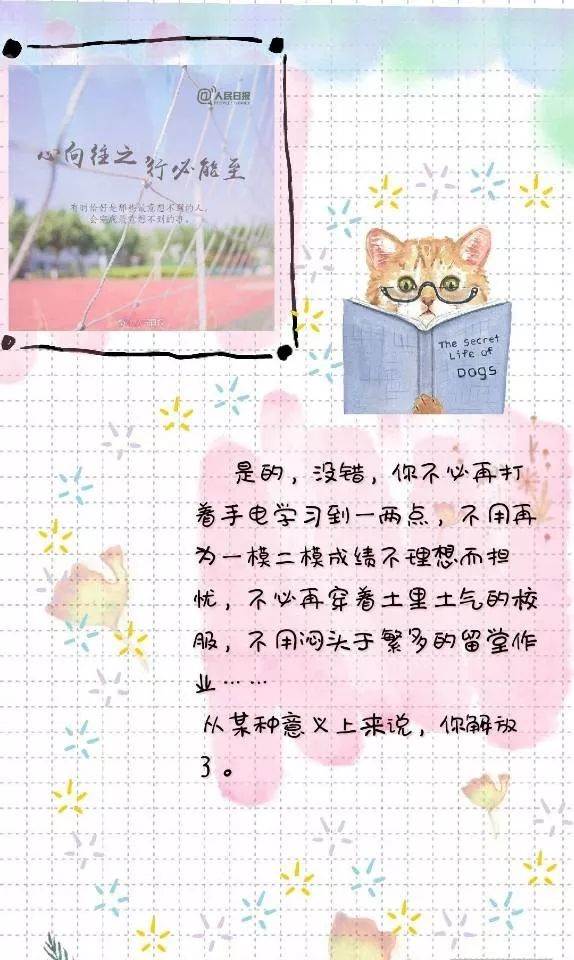 @人民日报
PEOPLE'S DAILY
心向往之 行必能至
有时恰好是那些最意想不到的人，
会完成最意想不到的事。
The Secret
Life of
Dogs
是的，没错，你不必再打
着手电学习到一两点，不用再
为一模二模成绩不理想而担
忧，不必再穿着土里土气的校
服，不用闷头于繁多的留堂作
业……
从某种意义上来说，你解放
了。